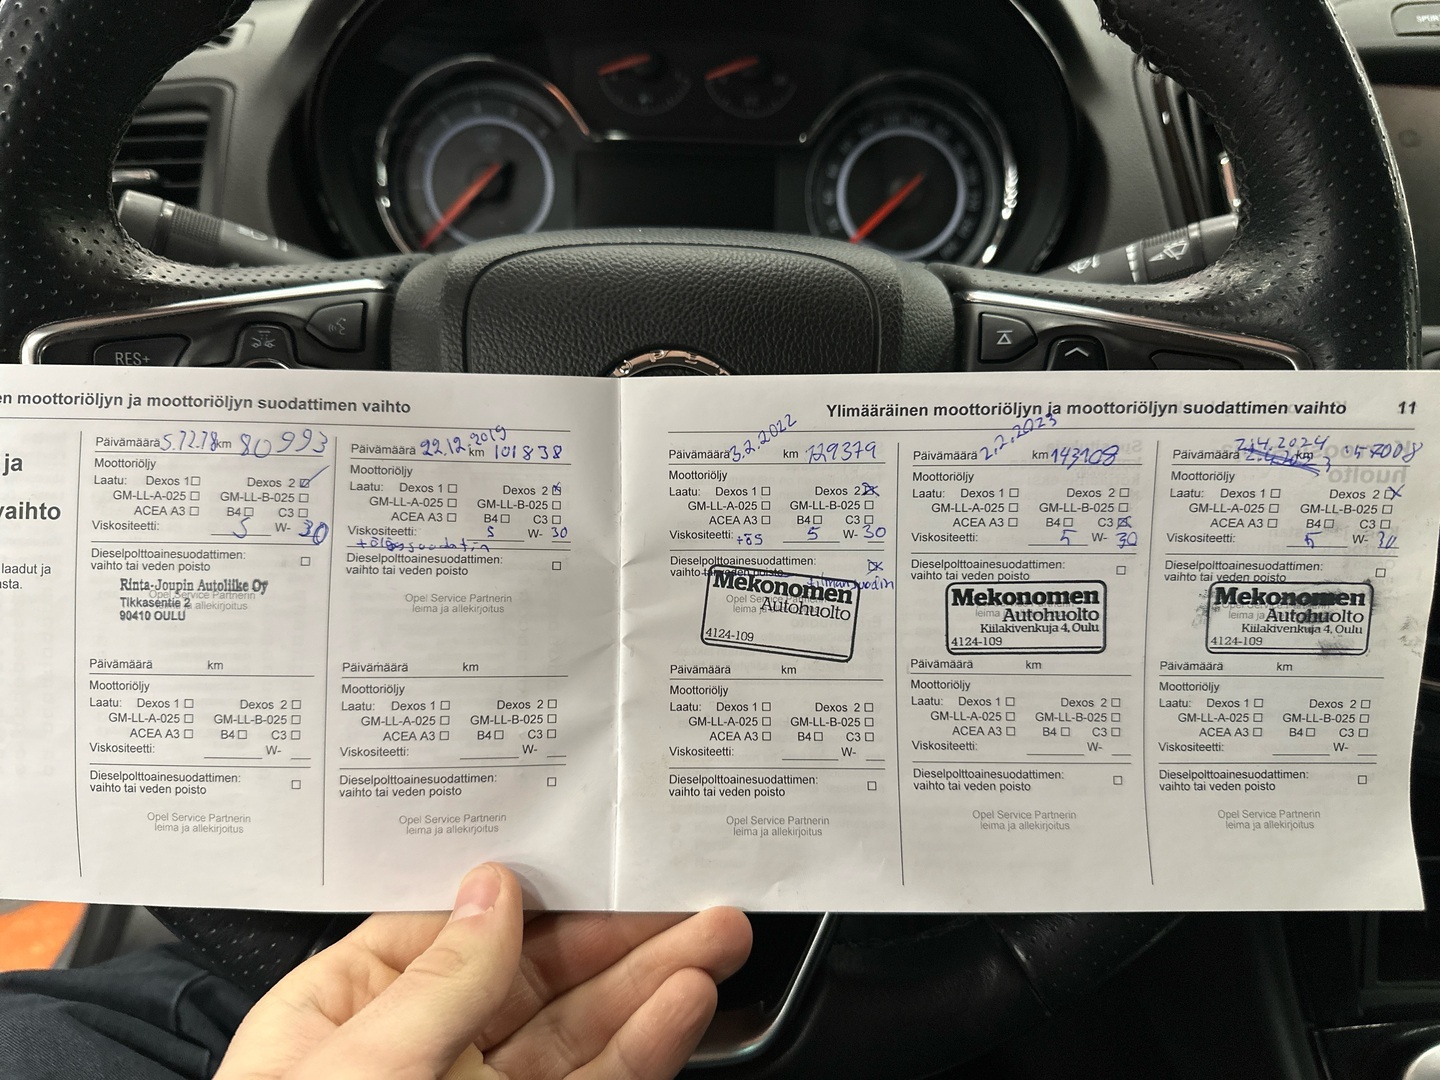 SPORT
RES+
en moottoriöljyn ja moottoriöljyn suodattimen vaihto
ja
vaihto
laadut ja
sta.
Päivämäärä 5.12.18 km 80993
Moottoriöljy
Laatu: Dexos 1 Dexos 2
GM-LL-A-025 GM-LL-B-025
ACEA A3 B4 C3
Viskositeetti: 5 W- 30
Dieselpolttoainesuodattimen:
vaihto tai veden poisto
Rinta-Joupin Autoliike Oy
Tikkasentie 2
90410 OULU
Opel Service Partnerin
leima ja allekirjoitus
Päivämäärä km
Moottoriöljy
Laatu: Dexos 1 Dexos 2
GM-LL-A-025 GM-LL-B-025
ACEA A3 B4 C3
Viskositeetti: W-
Dieselpolttoainesuodattimen:
vaihto tai veden poisto
Opel Service Partnerin
leima ja allekirjoitus
Päivämäärä 22.12.2019 km 101838
Moottoriöljy
Laatu: Dexos 1 Dexos 2
GM-LL-A-025 GM-LL-B-025
ACEA A3 B4 C3
Viskositeetti: 5 W- 30
Dieselpolttoainesuodattimen:
vaihto tai veden poisto
Opel Service Partnerin
leima ja allekirjoitus
Päivämäärä km
Moottoriöljy
Laatu: Dexos 1 Dexos 2
GM-LL-A-025 GM-LL-B-025
ACEA A3 B4 C3
Viskositeetti: W-
Dieselpolttoainesuodattimen:
vaihto tai veden poisto
Opel Service Partnerin
leima ja allekirjoitus
Ylimääräinen moottoriöljyn ja moottoriöljyn suodattimen vaihto 11
Päivämäärä 3.2.2022 km 129379
Moottoriöljy
Laatu: Dexos 1 Dexos 2
GM-LL-A-025 GM-LL-B-025
ACEA A3 B4 C3
Viskositeetti: +ös 5 W- 30
Dieselpolttoainesuodattimen:
vaihto tai veden poisto
Mekonomen
Autohuolto
4124-109
Päivämäärä km
Moottoriöljy
Laatu: Dexos 1 Dexos 2
GM-LL-A-025 GM-LL-B-025
ACEA A3 B4 C3
Viskositeetti: W-
Dieselpolttoainesuodattimen:
vaihto tai veden poisto
Opel Service Partnerin
leima ja allekirjoitus
Päivämäärä 2.2.2023 km 143108
Moottoriöljy
Laatu: Dexos 1 Dexos 2
GM-LL-A-025 GM-LL-B-025
ACEA A3 B4 C3
Viskositeetti: 5 W- 30
Dieselpolttoainesuodattimen:
vaihto tai veden poisto
Mekonomen
Autohuolto
Kiilakivenkuja 4, Oulu
4124-109
Päivämäärä km
Moottoriöljy
Laatu: Dexos 1 Dexos 2
GM-LL-A-025 GM-LL-B-025
ACEA A3 B4 C3
Viskositeetti: W-
Dieselpolttoainesuodattimen:
vaihto tai veden poisto
Opel Service Partnerin
leima ja allekirjoitus
Päivämäärä 2.4.2024 km
Moottoriöljy
Laatu: Dexos 1 Dexos 2
GM-LL-A-025 GM-LL-B-025
ACEA A3 B4 C3
Viskositeetti: 5 W- 30
Dieselpolttoainesuodattimen:
vaihto tai veden poisto
Mekonomen
Autohuolto
Kiilakivenkuja 4, Oulu
4124-109
Päivämäärä km
Moottoriöljy
Laatu: Dexos 1 Dexos 2
GM-LL-A-025 GM-LL-B-025
ACEA A3 B4 C3
Viskositeetti: W-
Dieselpolttoainesuodattimen:
vaihto tai veden poisto
Opel Service Partnerin
leima ja allekirjoitus